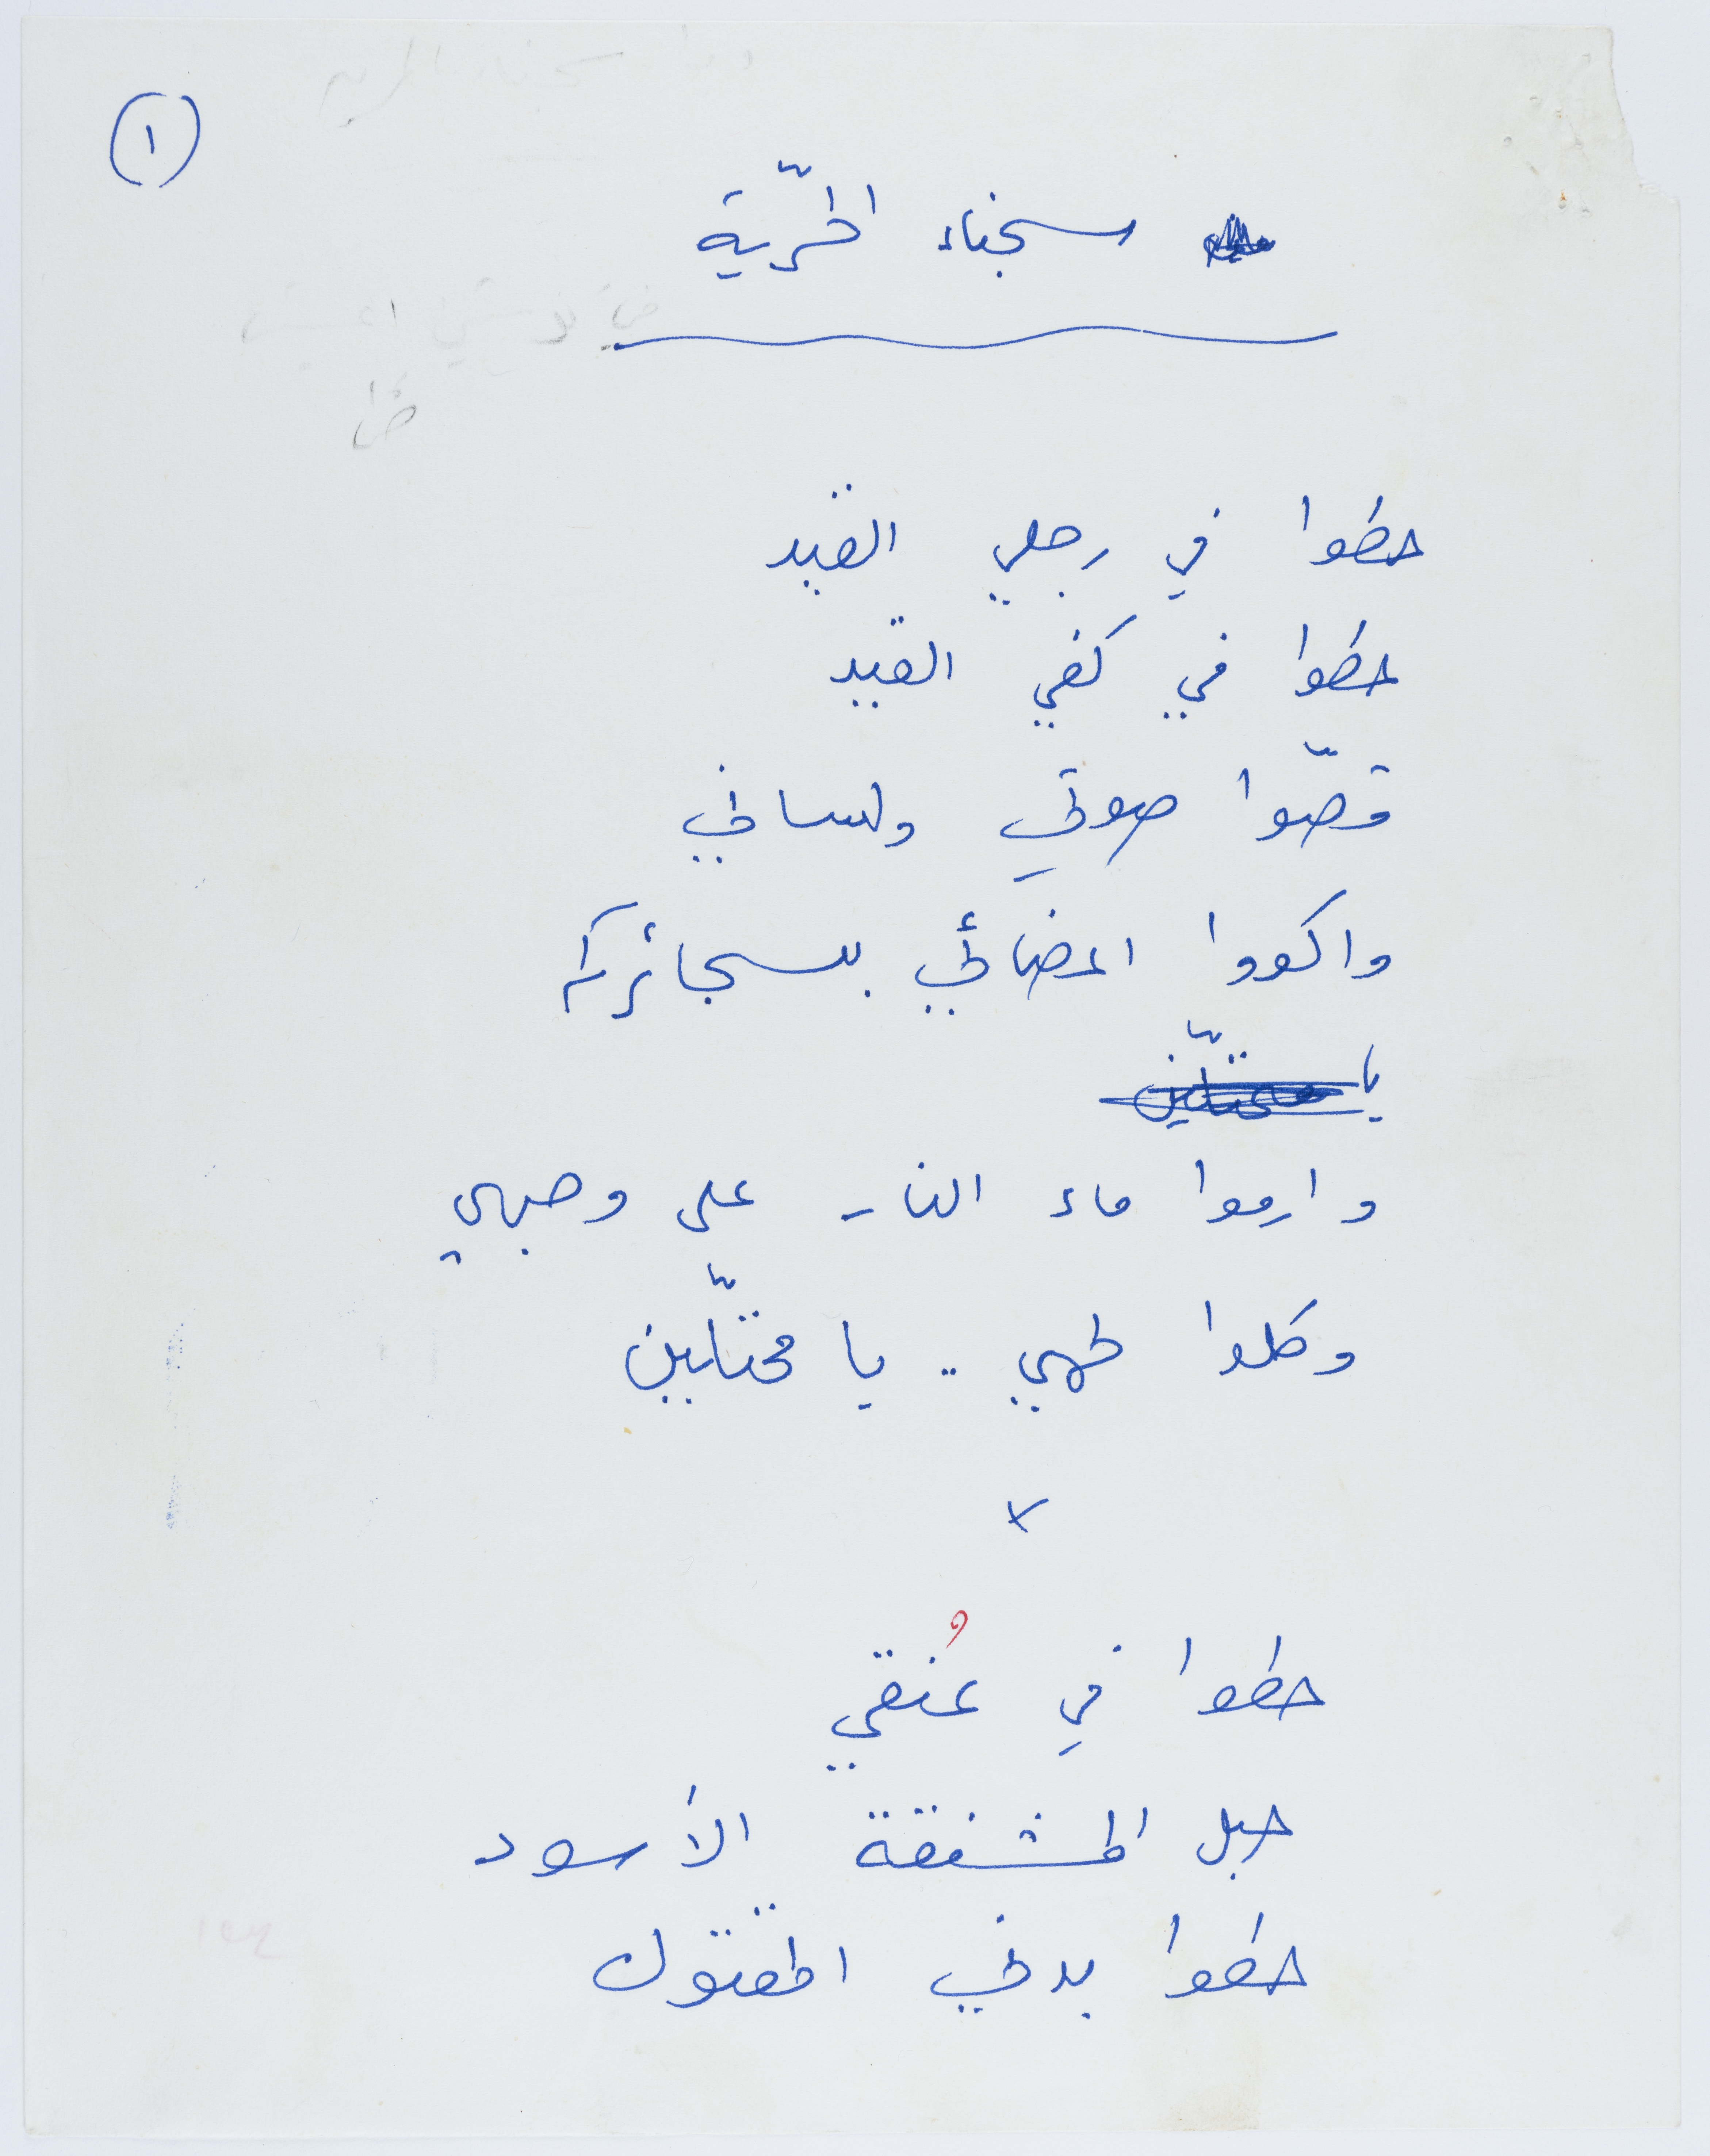 ١
سجناء الحرّية
حطوا في رجلي القيد
حطوا في كفي القيد
قصّوا صوتي ولساني
واكووا اعضائي بسجائركم
يا محتلّين
وارموا ماء النار على وجهي
وكلوا لحمي .. يا محتلّين
x
حطوا في عُنقي
حبل المشنقة الأسود
حطوا بدني المقتول